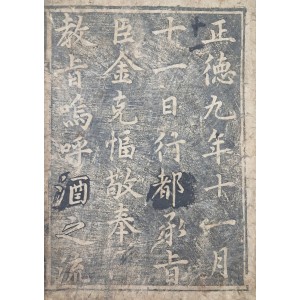 正德九年十一月
十一日行都承旨
臣金克愊敬奉
教旨嗚呼酒之流